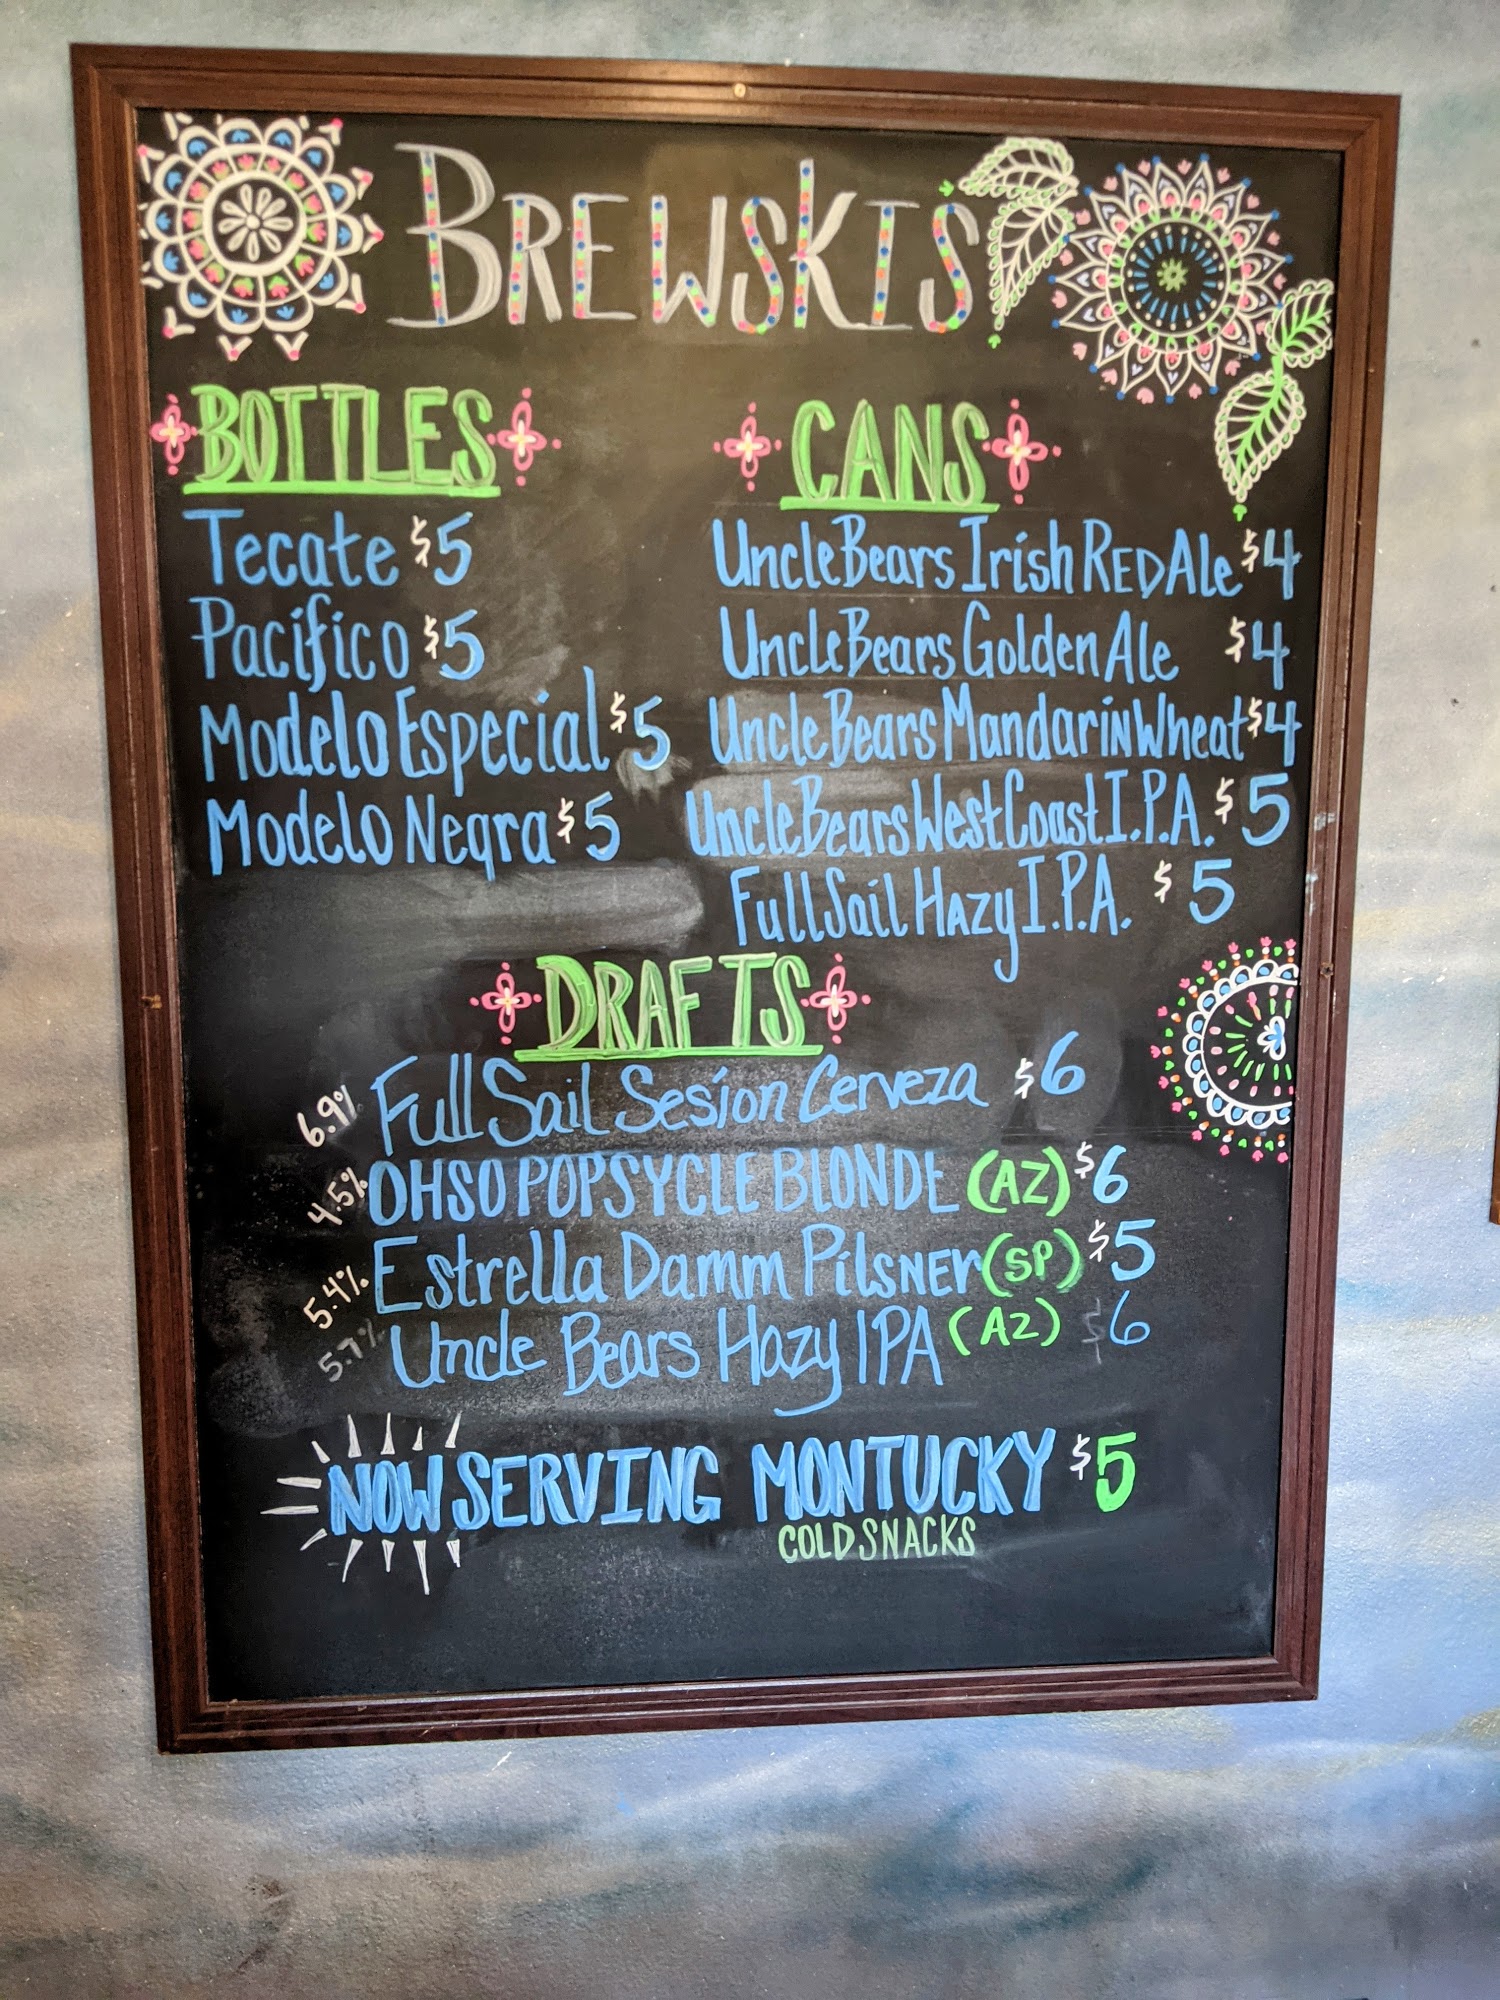 BREWSKIS
BOTTLES
Tecate $5
Pacifico $5
Modelo Especial $5
Modelo Negra $5
CANS
Uncle Bears Irish RED Ale $4
Uncle Bears Golden Ale $4
Uncle Bears Mandarin Wheat $4
Uncle Bears West Coast I.P.A. $5
Full Sail Hazy I.P.A. $5
DRAFTS
6.9% Full Sail Sesión Cerveza $6
4.5% OHSO POPSYCLE BLONDE (AZ) $6
5.4% Estrella Damm Pilsner (SP) $5
5.7% Uncle Bears Hazy IPA (AZ) $6
NOW SERVING MONTUCKY $5
COLD SNACKS